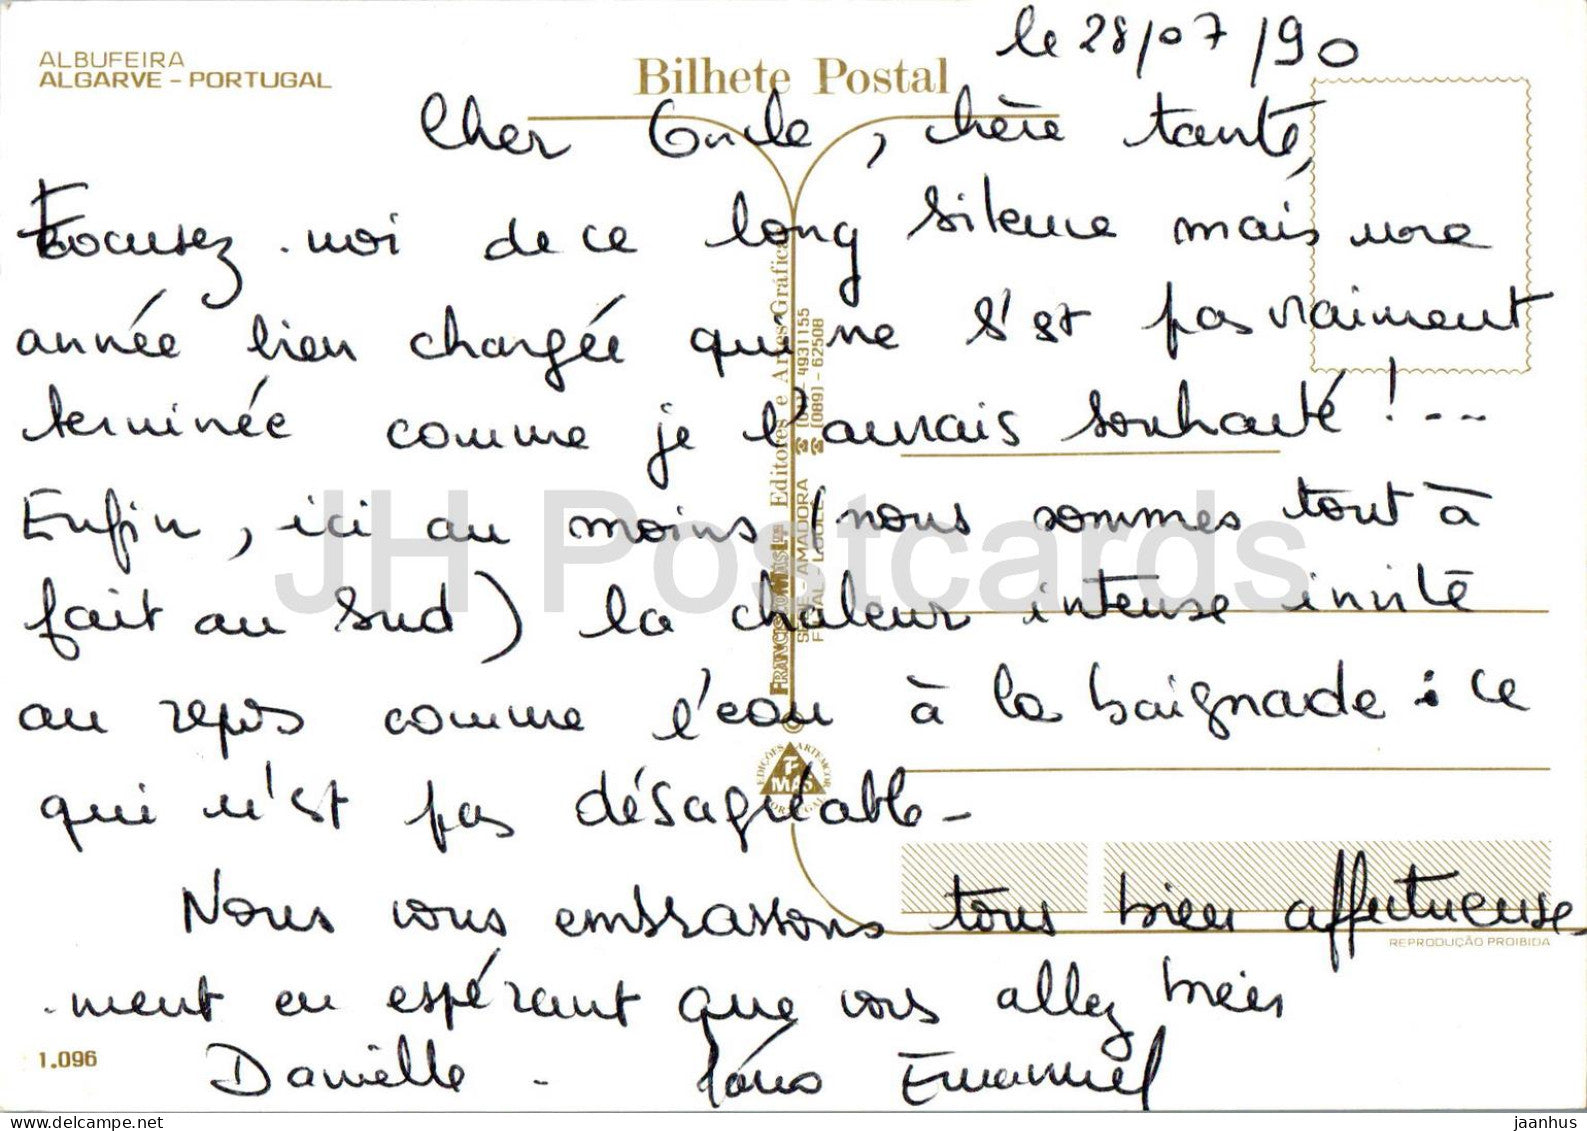 le 28/07/90
ALBUFEIRA
ALGARVE - PORTUGAL
Bilhete Postal
Cher Oncle, chère tante,
Excusez-moi de ce long silence mais une
année bien chargée qui ne s'est pas vraiment
terminée comme je l'aurais souhaité !...
Enfin, ici au moins (nous sommes tout à
fait au Sud) la chaleur intense invite
au repos comme l'eau à la baignade : ce
qui n'est pas désagréable -
Nous vous embrassons tous bien affectueuse
-ment en espérant que vous allez bien
Danielle - Emanuel
1.096
REPRODUÇÃO PROIBIDA
Editores e Artes Gráficas
4931155
(089) - 62508
AMADORA
EDIÇÕES ARTEMCOR
F MAS
PORTUGAL
JH Postcards
jaanhus © delcampe.net